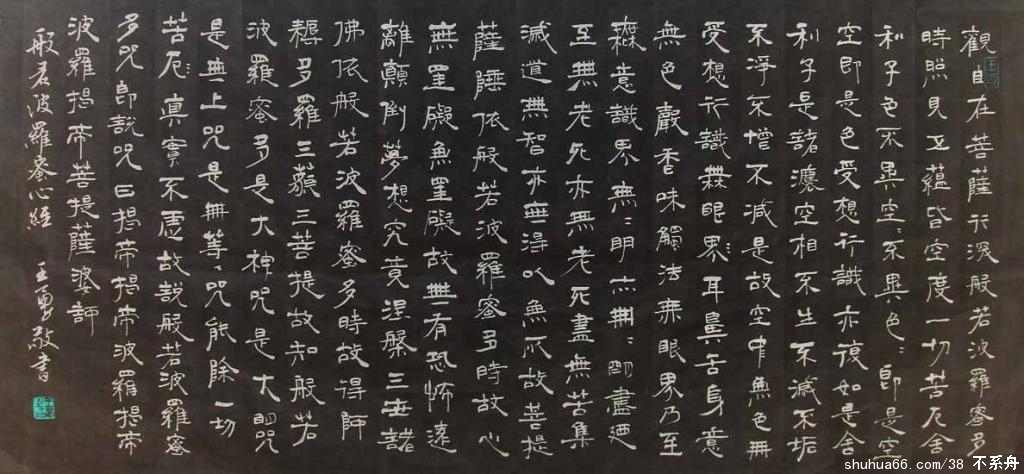 觀自在菩薩行深般若波羅蜜多
時照見五蘊皆空度一切苦厄舍
利子色不異空〻不異色〻即是空
空即是色受想行識亦復如是舍
利子是諸灋空相不生不滅不垢
不淨不增不減是故空中無色無
受想行識無眼界耳鼻舌身意
無色聲香味觸法無眼界乃至
無意識界無〻明亦無〻明盡迺
至無老死亦無老死盡無苦集
滅道無智亦無得以無所故菩提
薩埵依般若波羅蜜多時故心
無罣礙無罣礙故無有恐怖遠
離顛倒夢想究竟涅槃三世諸
佛依般若波羅蜜多時故得阿
耨多羅三藐三菩提故知般若
波羅蜜多是大神咒是大明咒
是無上咒是無等〻咒能除一切
苦厄真實不虛故說般若波羅蜜
多咒即說咒曰揭帝揭帝波羅揭帝
波羅揭帝菩提薩婆訶
般若波羅蜜心經 王勇敬書
shuhua66.com/38 不系舟